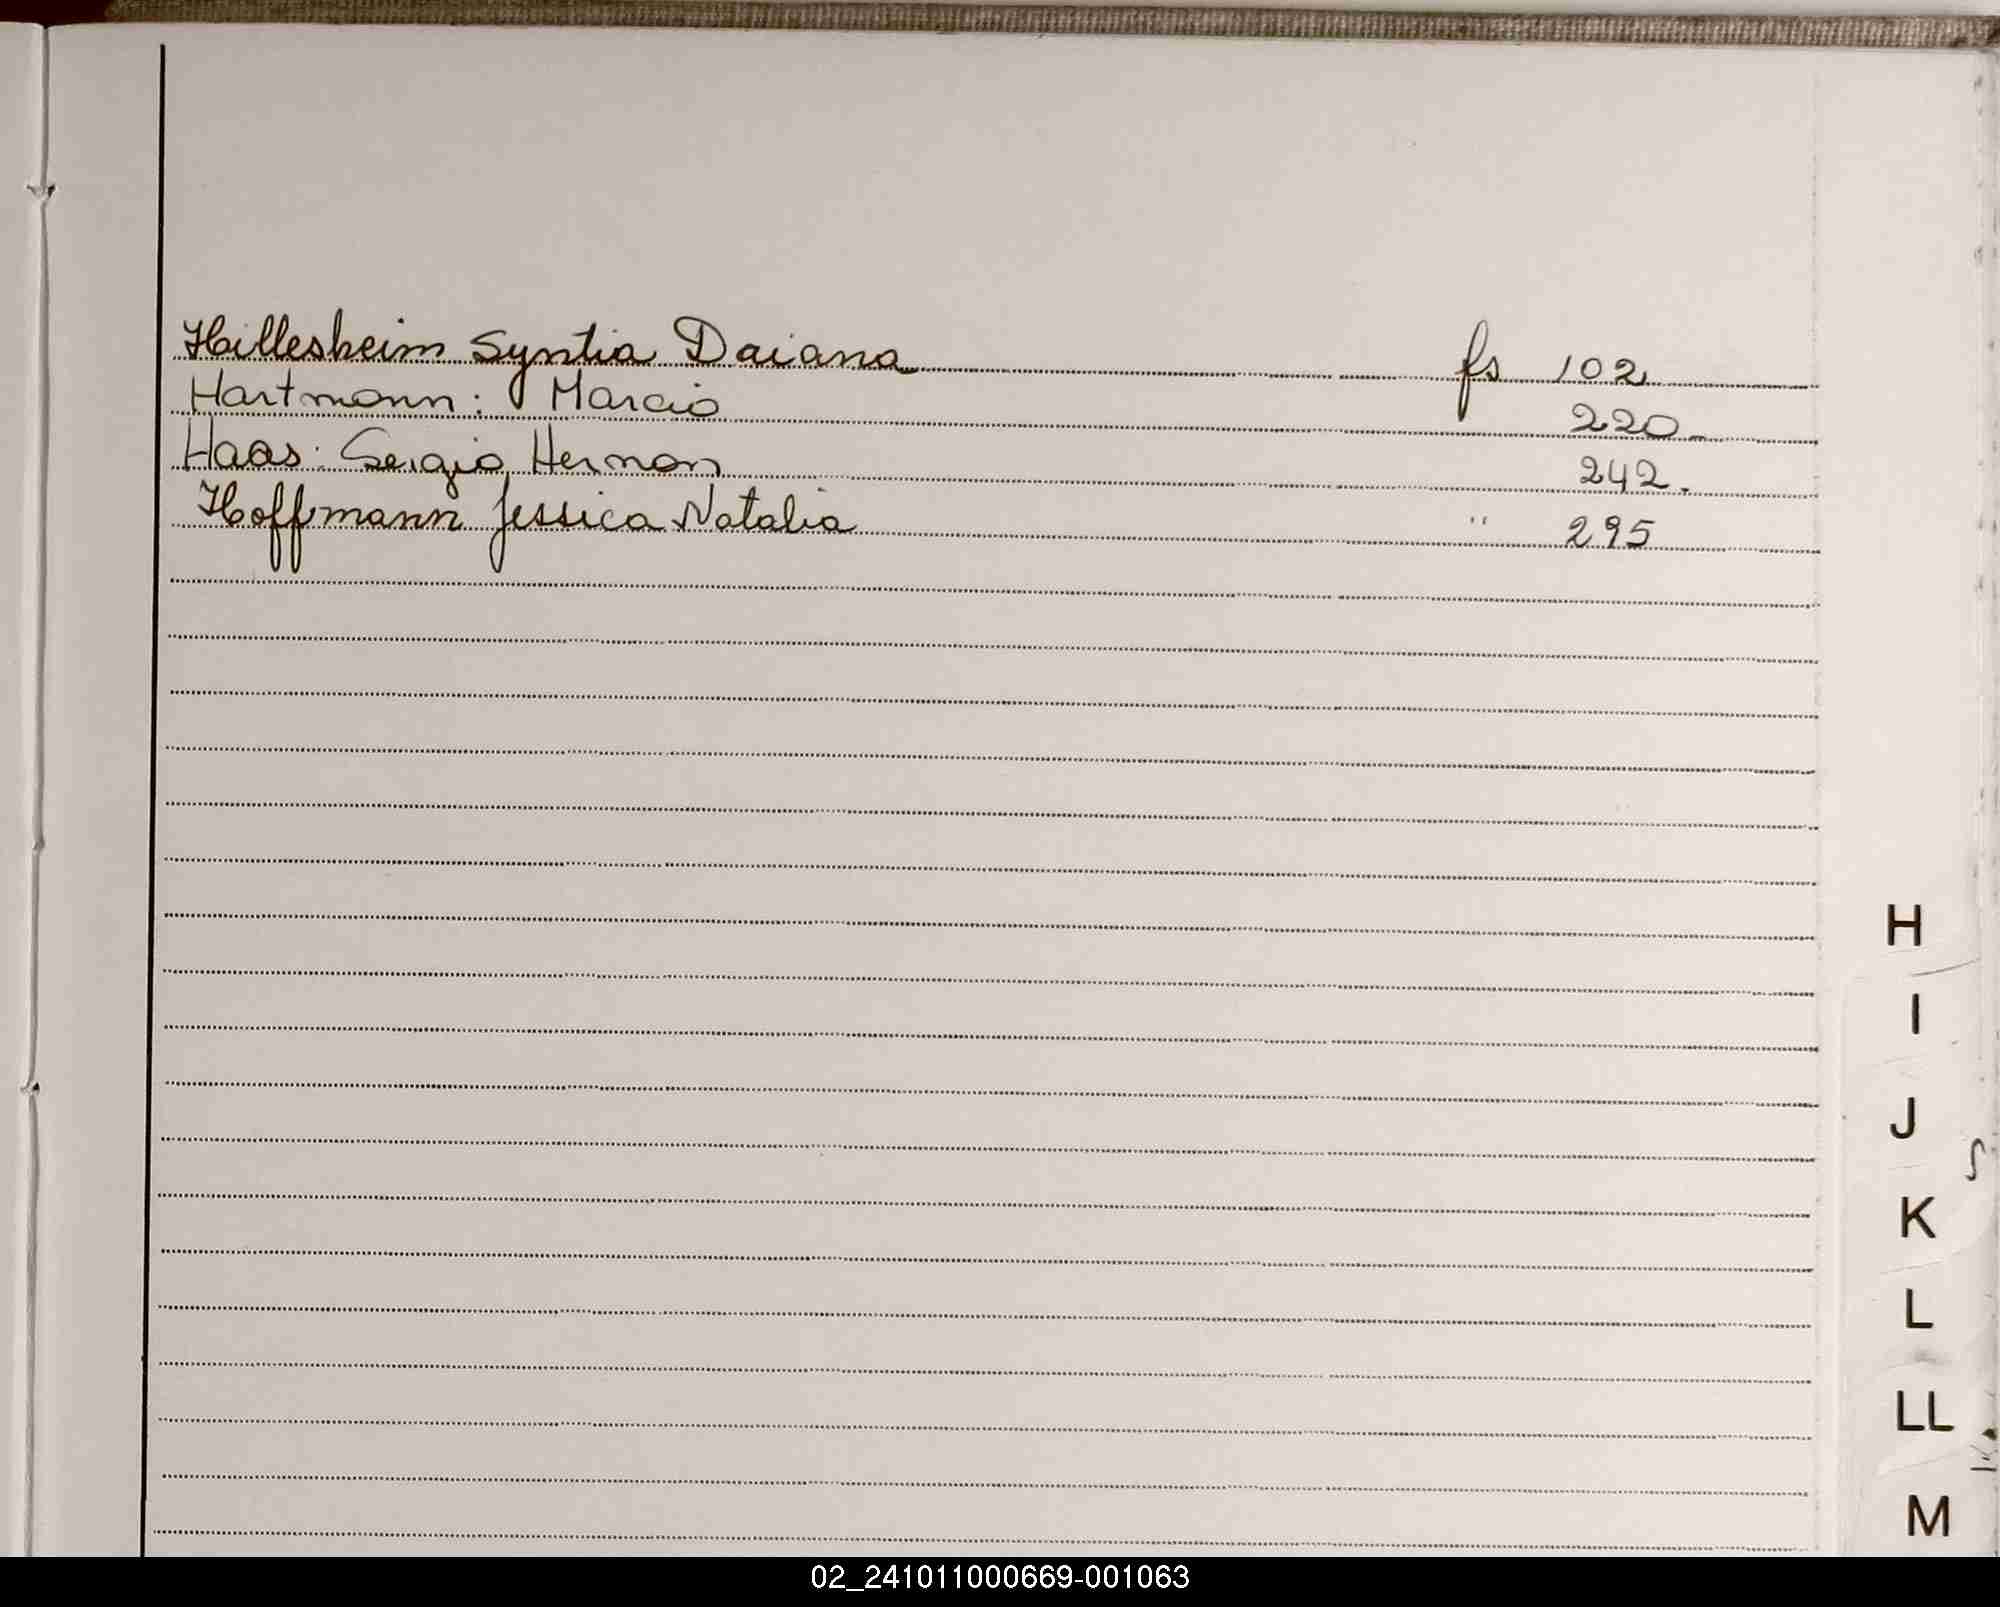 Hillesheim Syntia Daiana fs 102
Hartmann: Marcio 220-
Haas: Sergio Hernan 242.
Hoffmann Jessica Natalia " 295
H
I
J
K
L
LL
M
02_241011000669-001063